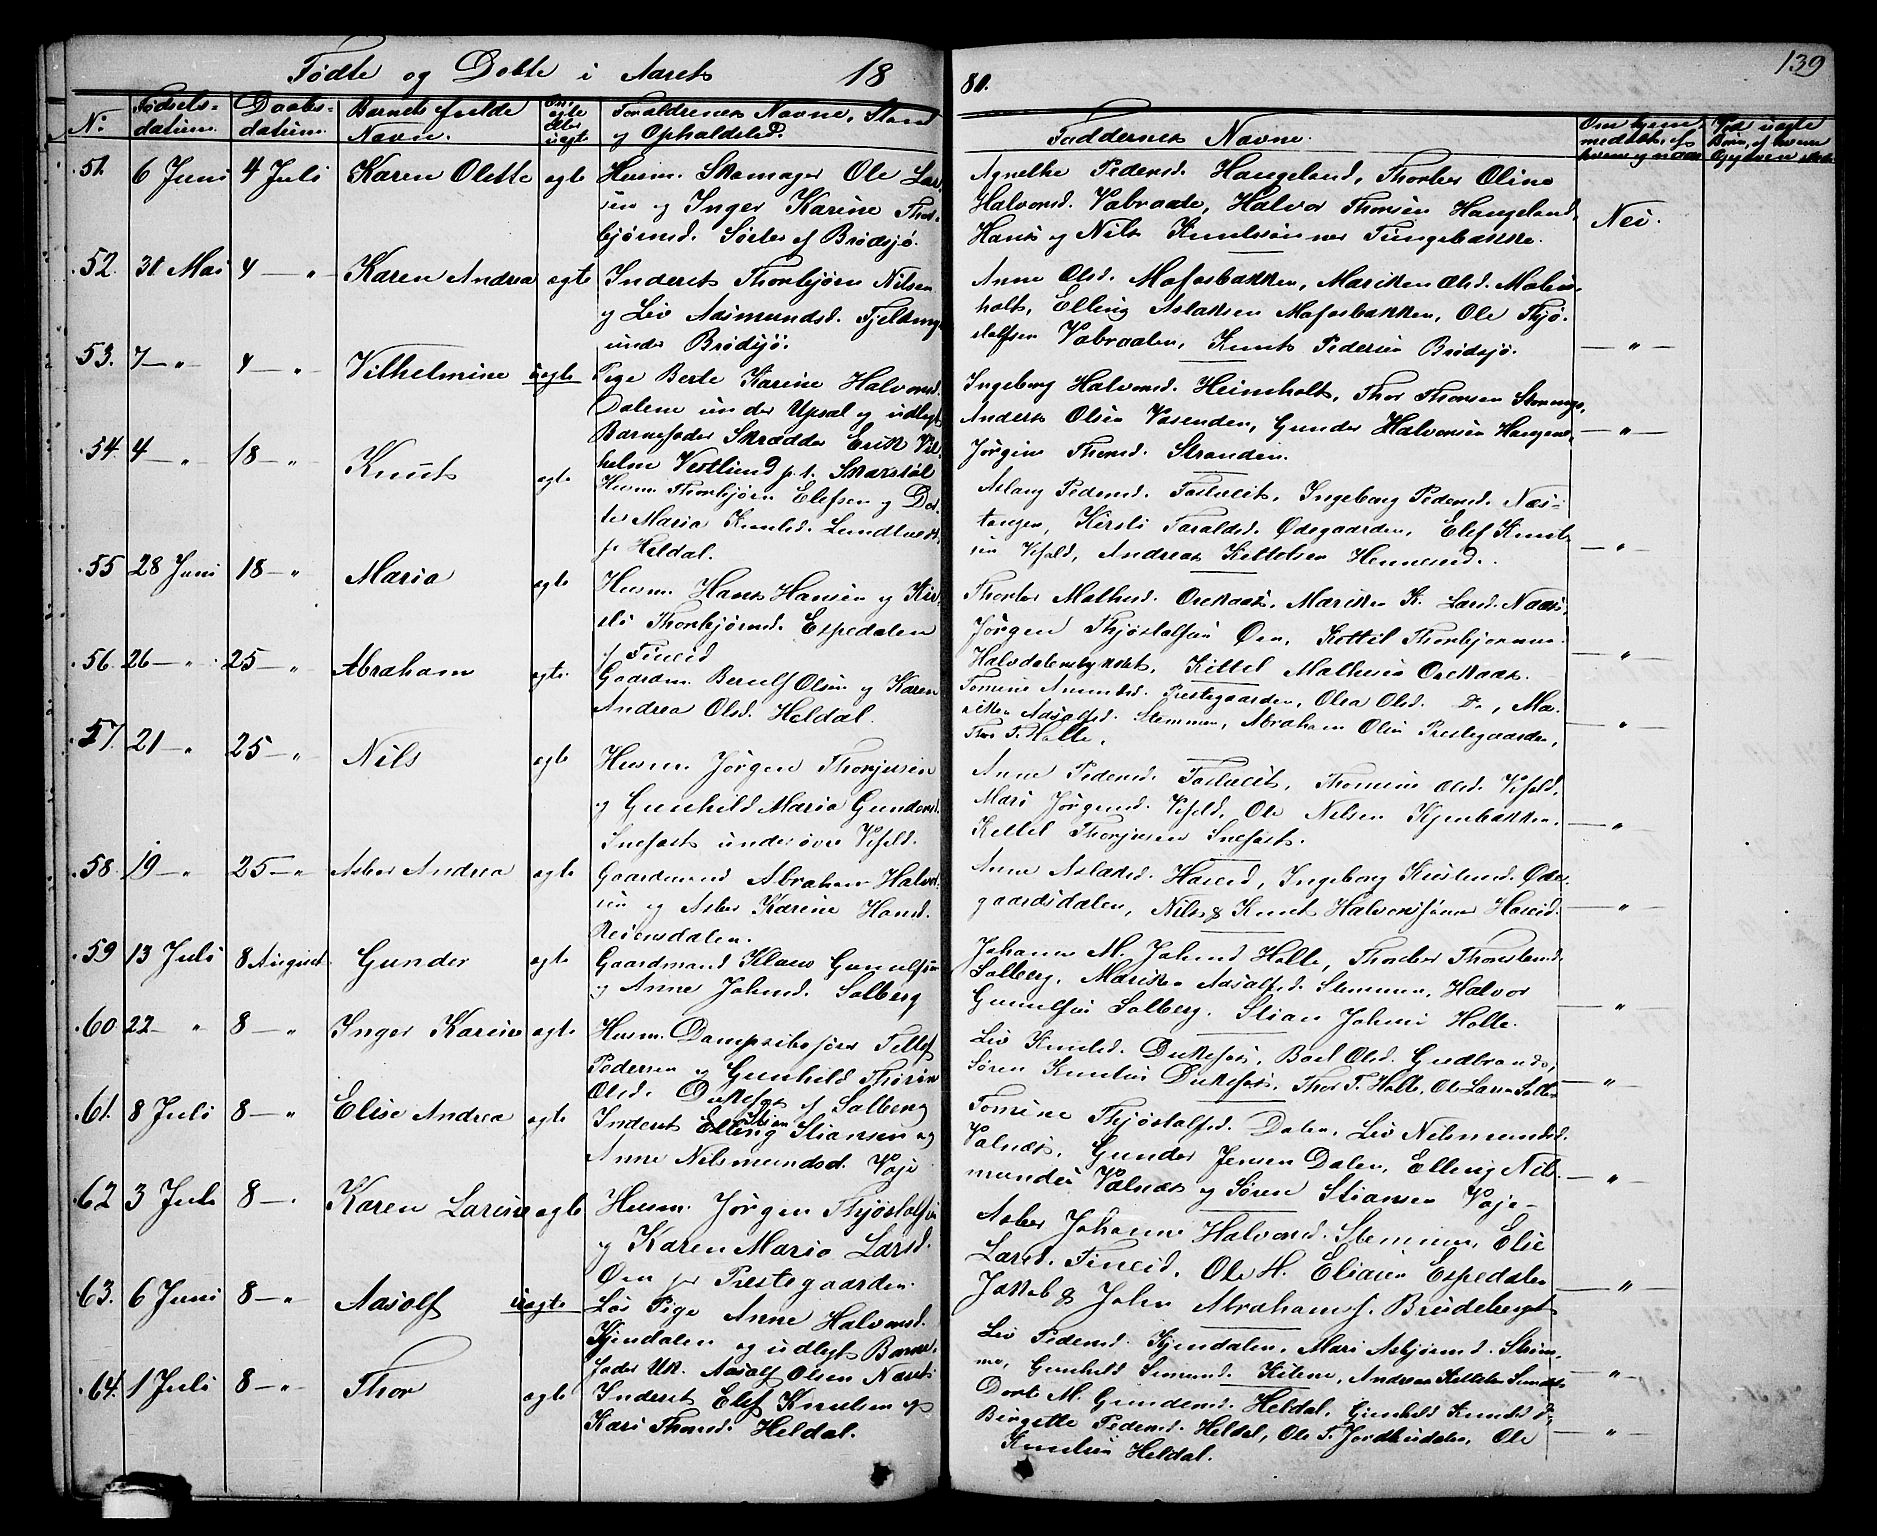 Födte og Döbte i Aaret 18 80. 139
No Födsels-datum. Daabs-datum. Barnets fulde Navn. Om ægte eller uægte Forældrenes Navne, Stand og Opholdsted. Faddernes Navne. Om hjemmedöbt, af hvem og naar Ved uægte Börn, af hvem Opgaven skeet
51. 6 Juni 4 Juli Karen Olette ægte Husm. Skomager Ole Lar-
sen og Inger Karine Thor-
björnsd. Sörlee af Brödsjö.
Agnethe Pedersd. Haugeland, Thorber Oline
Halvorsd. Vabraate, Halvor Thorsen Haugeland,
Hans og Nils Knudsönner Tungebakke. Nei.
52. 31 Mai 4 — " Karen Andrea ægte Inderst Thorbjörn Nilsen
og Liv Aasmundsd. Fjeldeng
under Brödsjö.
Anne Olsd. Mofosbakken, Mariken Olsd. Molin-
holt, Elling Aslaksen Mofosbakken, Ole Thjö-
stolfsen Vabraaten, Knut Pedersen Brödsjö. — " —
53. 7 — " 4 — " Vilhelmine uægte Pige Berte Karine Halvorsd.
Dalene under Upsal og udlagt
Barnefader Skrædder Erik Vil-
helm Vestlund p. t. Skarstöl
Ingeborg Halvorsd. Heimholt, Thor Thorsen
Anders Olsen Vasenden, Gunder Halvorsen
Jörgen Thorsd. Stranden. — " —
54. 4 — " 18 — " Knut ægte Husm. Thorbjörn Elefsen og Dor-
te Maria Knutsd. Lundtvedt
p. Heldal.
Aslaug Pedersd. Fosteveit, Ingeborg Pedersd. Næs-
tangen, Kirsti Taraldsd. Ödegaarden, Elef Knut-
sen Vefald, Andreas Kittelsen Hennesend. — " —
55 28 Juni 18 — " Maria ægte Husm. Hans Hansen og Kir-
sti Thorbjörnsd. Espedalen
p. Fineid
Thorber Mathisd. Orekaas, Mariken K. Larsd. Naas,
Jörgen Thjöstolfsen Öen, Kittil Thorbjörnsen
Halvdalensbykset, Kittel Mathisen Orekaas. — " —
56. 26 — " 25 — " Abraham ægte Gaardm. Berulf Olsen og Karen
Andrea Olsd. Heldal.
Tomine Amundsd. Prestegaarden, Olea Olsd. Do, Ma-
riken Aasolfsd. Stemmen, Abraham Olsen Prestegaarden,
Thor T. Holte. — " —
57. 21 — " 25 — " Nils ægte Husm. Jörgen Thorjussen
og Gunhild Maria Gundersd.
Snefost under övre Vefald.
Anne Pedersd. Fosteveit, Thomine Olsd. Vefald,
Mari Jörgensd. Vefald, Ole Nilsen Kjenbakken,
Kittel Thorjusen Snefost. — " —
58. 19 — " 25 — " Asber Andrea ægte Gaardmand Abraham Halvor-
sen og Asber Karine Hansd.
Reiersdalen.
Anne Aslaksd. Haseid, Ingeborg Knutsd. Öde-
gaardsdalen, Nils & Knut Halvorsönner Haseid. — " —
59 13 Juli 8 August. Gunder ægte Gaardmand Klaus Gunulfsen
og Anne Johnsd. Solberg
Johanne M. Johnsd. Holte, Thorber Thorstensd.
Solberg, Mariken Aasolfsd. Stemmen, Halvor
Gunulfsen Solberg, Stian Johnsen Holte. — " —
60 22 — " 8 — " Inger Karine ægte Husm. Dampskibsförer Tellef
Pedersen og Gunhild Thorine
Olsd. Dukefos af Solberg
Liv Knutsd. Dukefos, Boel Olsd. Gudbrands,
Sören Knutsen Dukefos, Thor T. Holte, Ole Larsen — " —
61. 8 Juli 8 — " Elise Andrea ægte Inderst Elling Stiansen og
Anne Nilsmundsd. Voje
Tomine Thjöstolfsd. Dalen, Liv Nilsmundsd.
Valnæs, Gunder Jensen Dalen, Elling Nils-
mundsen Valnæs og Sören Stiansen Voje. — " —
62 3 Juli 8 — " Karen Larine ægte Husm. Jörgen Thjöstolfsen
og Karen Maria Larsd.
Öen p. Prestegaarden.
Asber Johanne Halvorsd. Stemmen, Elise
Larsd. Fineid, Ole H. Eliasen Espedalen
Jakob & John Abrahams s. Brudeberget — " —
63. 6 Juni 8 — " Aasolf uægte Lös Pige Anne Halvorsd.
Kjendalen og udlagt Barne-
fader Uk. Aasolf Olsen Næset
Liv Pedersd. Kjendalen, Mari Asbjörnsd. Stem-
men, Gunhild Simunsd. Kilene, Andreas Kittelsen — " —
64. 1 Juli 8 — " Thor ægte Inderst Elef Knutsen og
Kari Thorsd. Heldal.
Dorte M. Gundersd. Heldal, Gunhild Knutsd. Do
Birgitte Pedersd. Heldal, Ole T. Jordkjedalen, Ole
Knutsen Heldal. — " —